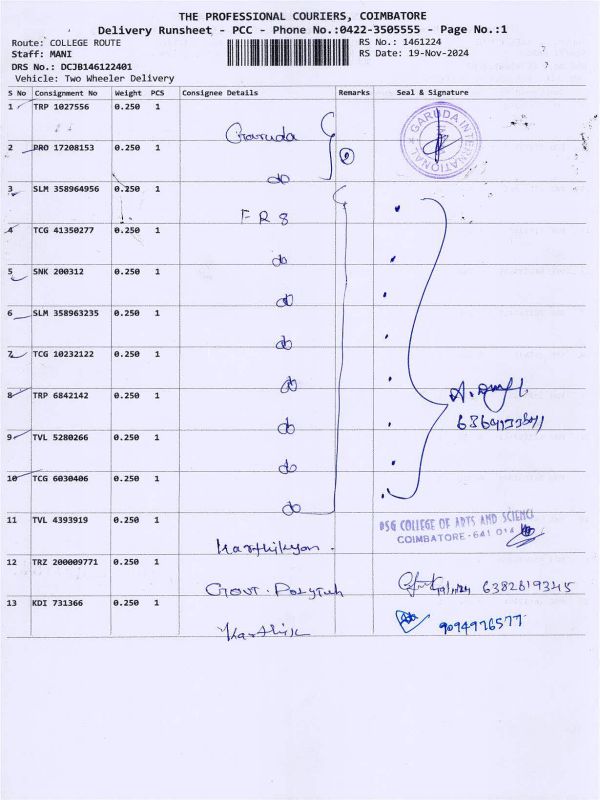 THE PROFESSIONAL COURIERS, COIMBATORE
Delivery Runsheet - PCC - Phone No.:0422-3505555 - Page No.:1
Route: COLLEGE ROUTE RS No.: 1461224
Staff: MANI RS Date: 19-Nov-2024
DRS No.: DCJB146122401
Vehicle: Two Wheeler Delivery
S No Consignment No Weight PCS Consignee Details Remarks Seal & Signature
1 TRP 1027556 0.250 1
Garuda
GARUDA INTERNATIONAL
2 PRO 17208153 0.250 1
do
2
3 SLM 358964956 0.250 1
F R 8
4 TCG 41350277 0.250 1
do
5 SNK 200312 0.250 1
do
6 SLM 358963235 0.250 1
do
7 TCG 10232122 0.250 1
do
8 TRP 6842142 0.250 1
do
9 TVL 5280266 0.250 1
do
10 TCG 6030406 0.250 1
do
11 TVL 4393919 0.250 1
Karthikyan.
PSG COLLEGE OF ARTS AND SCIENCE
COIMBATORE - 641 014
12 TRZ 200009771 0.250 1
Govt. Polytech 19/11/24 6382619345
13 KDI 731366 0.250 1
Karthik 9094926577